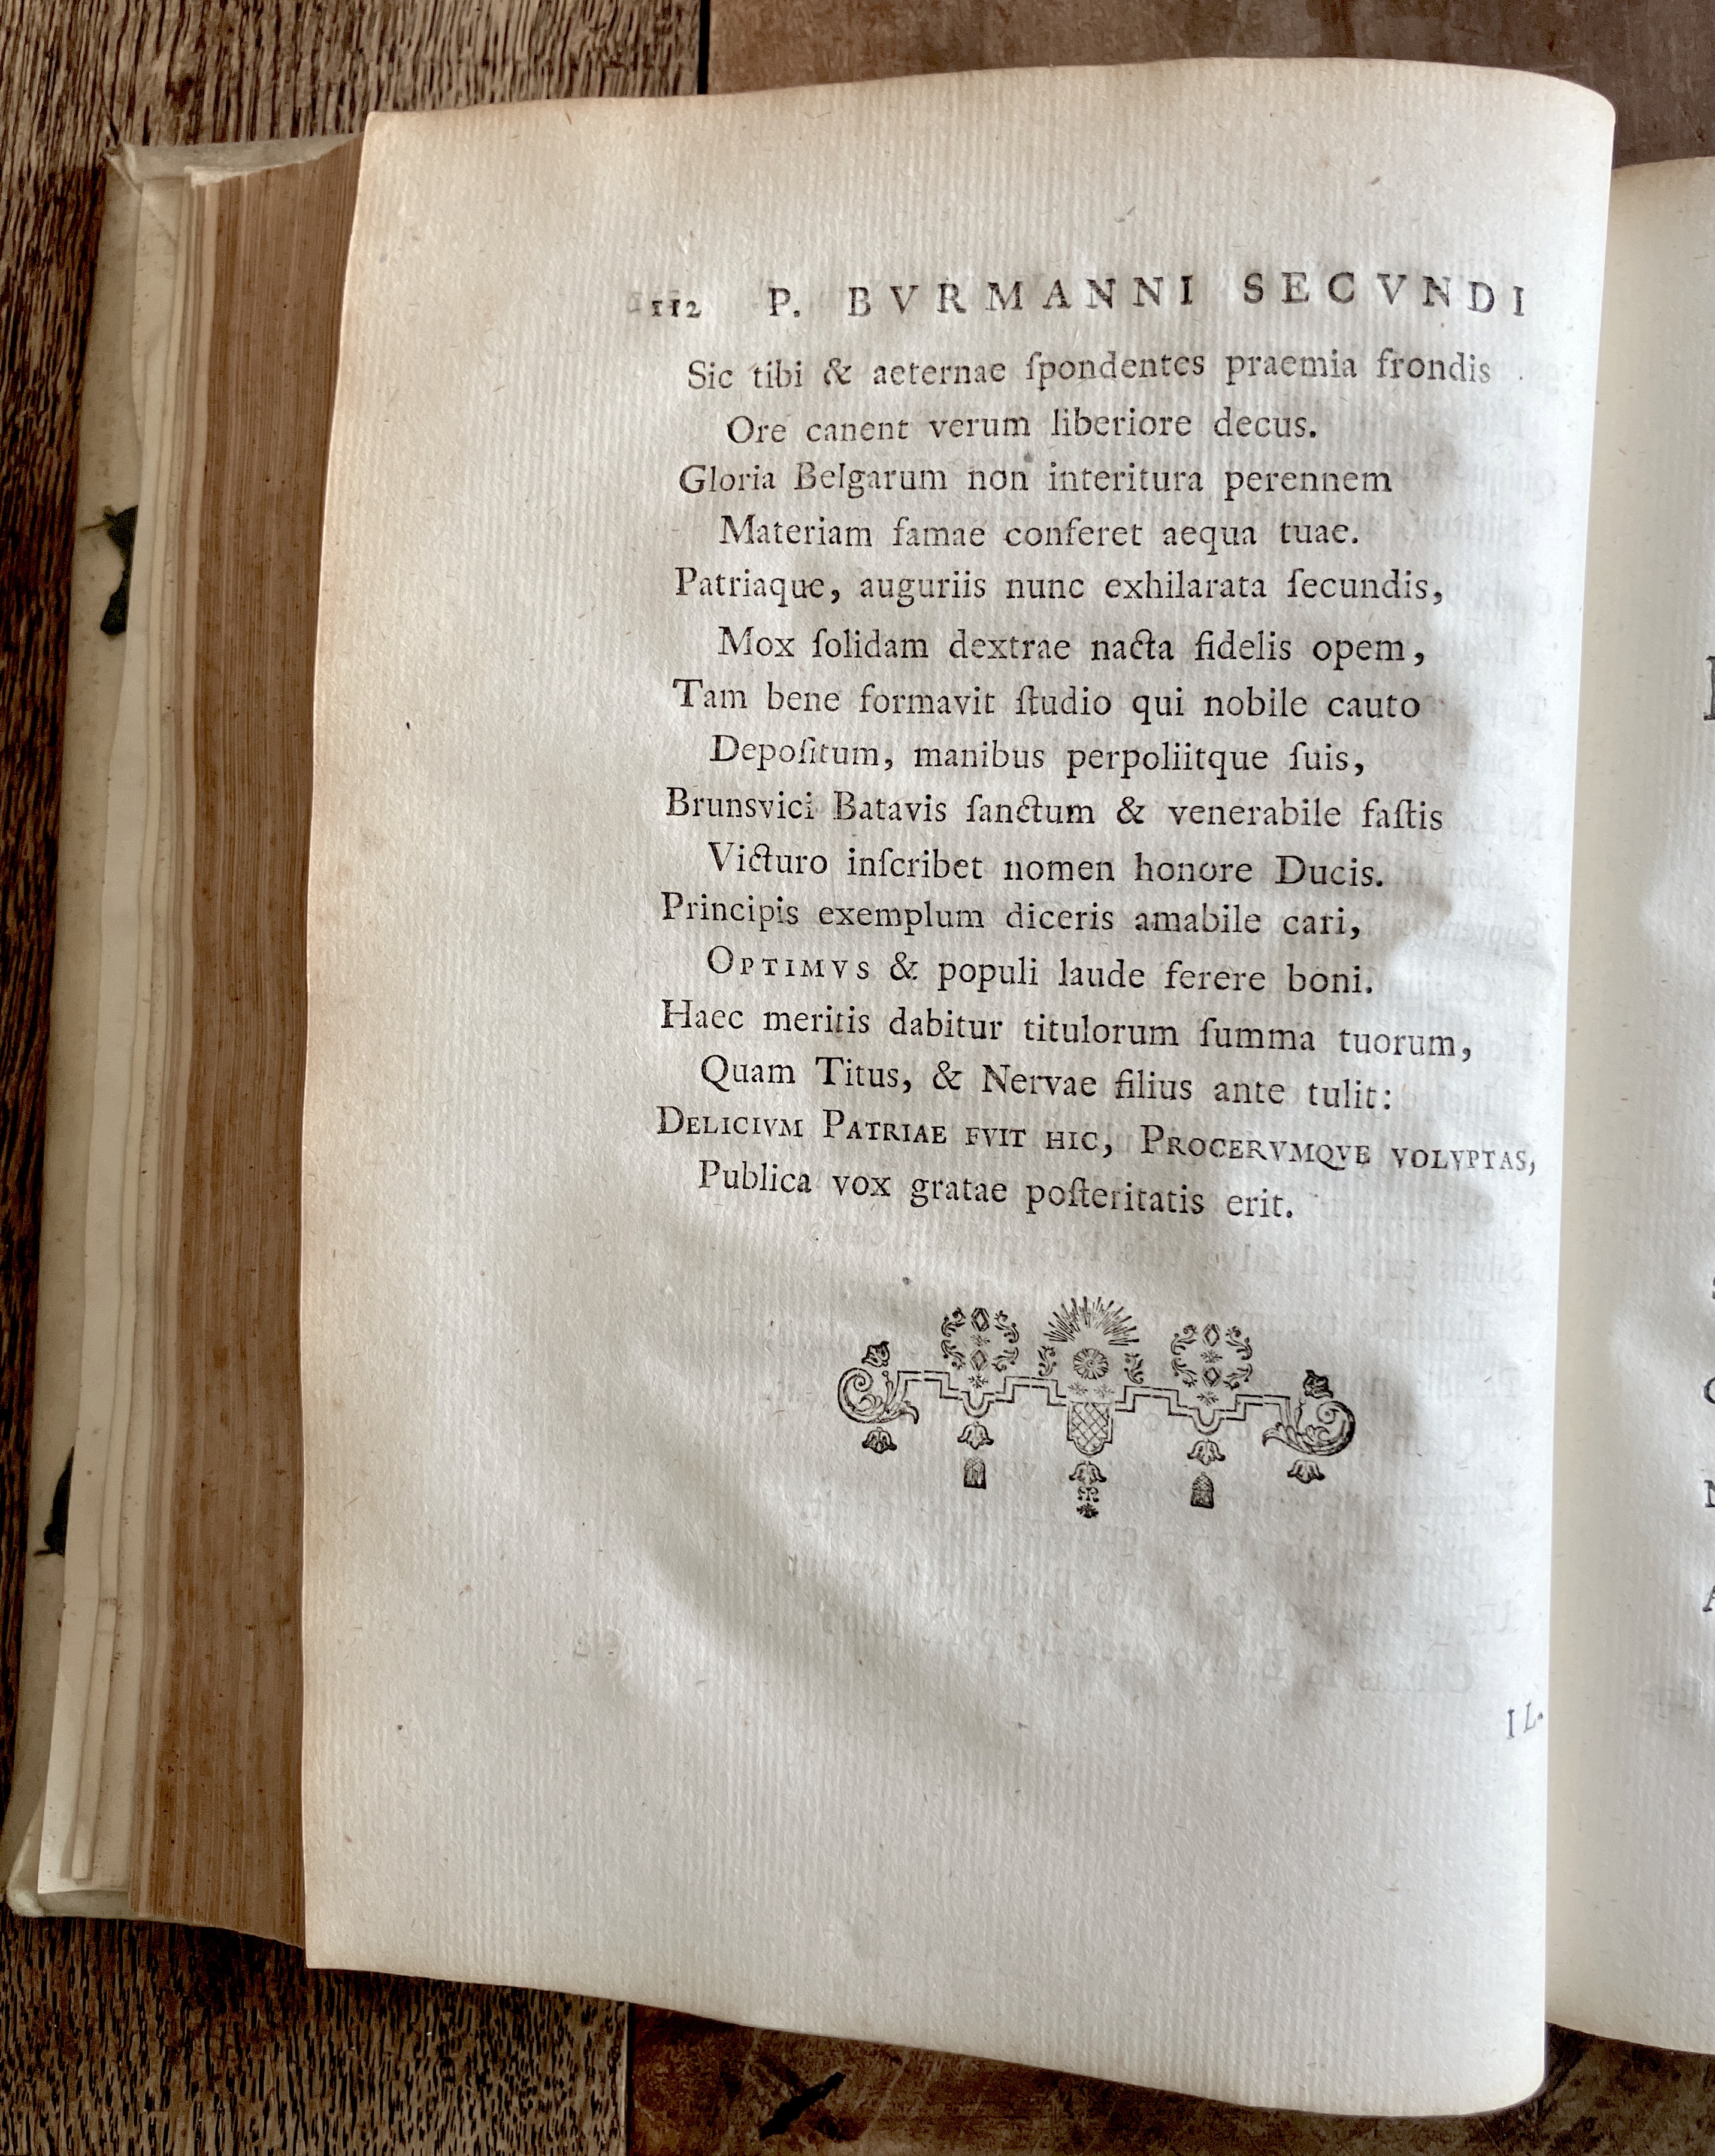 112 P. BVRMANNI SECVNDI
Sic tibi & aeternae ſpondentes praemia frondis
Ore canent verum liberiore decus.
Gloria Belgarum non interitura perennem
Materiam famae conferet aequa tuae.
Patriaque, auguriis nunc exhilarata ſecundis,
Mox ſolidam dextrae nacta fidelis opem,
Tam bene formavit ſtudio qui nobile cauto
Depoſitum, manibus perpoliitque ſuis,
Brunsvici Batavis ſanctum & venerabile faſtis
Victuro inſcribet nomen honore Ducis.
Principis exemplum diceris amabile cari,
OPTIMVS & populi laude ferere boni.
Haec meritis dabitur titulorum ſumma tuorum,
Quam Titus, & Nervae filius ante tulit:
DELICIVM PATRIAE FVIT HIC, PROCERVMQVE VOLVPTAS,
Publica vox gratae poſteritatis erit.
IL.